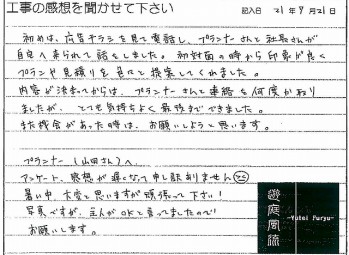 工事の感想を聞かせて下さい
記入日 21年9月21日
初めは、広告チラシを見て電話し、プランナーさんと社長さんが
自宅へ来られて話をしました。初対面の時から印象が良く
プランや見積りを色々と提案してくれました。
内容が決まってからは、プランナーさんと連絡を何度か取り
ましたが、とても気持ちよく最後までできました。
また機会があった時は、お願いしようと思います。
プランナー(山田さん)へ
アンケート、感想が遅くなって申し訳ありません
暑い中、大変と思いますが頑張って下さい!
写真ですが、主人がOKと言ってましたので
お願いします。
遊庭風流
-Yutei Furyu-